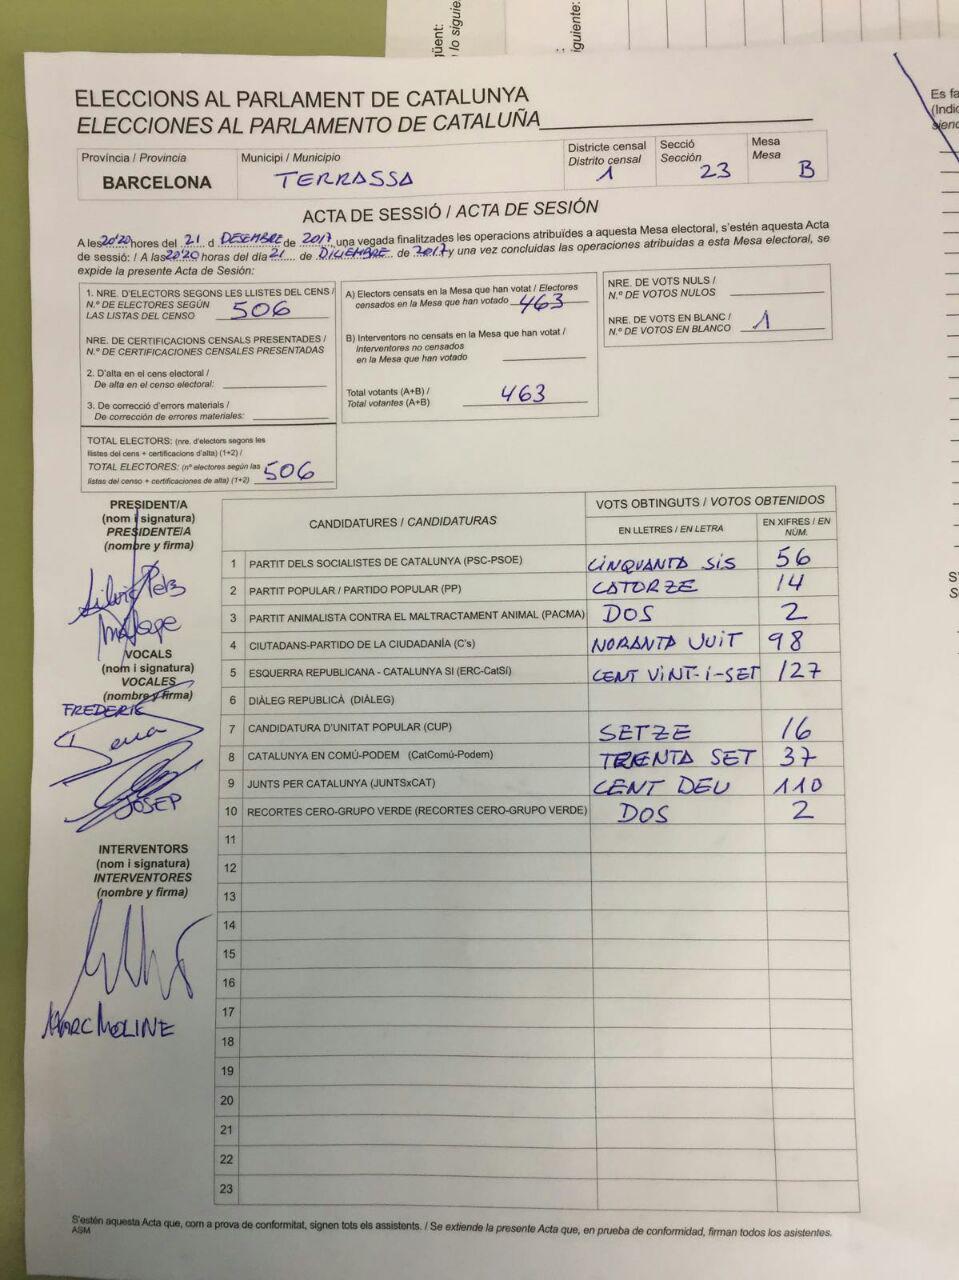 güent:
lo siguie
iguiente:
ELECCIONS AL PARLAMENT DE CATALUNYA
ELECCIONES AL PARLAMENTO DE CATALUÑA
Província / Provincia
BARCELONA
Municipi / Municipio
TERRASSA
Districte censal
Distrito censal
1
Secció
Sección
23
Mesa
Mesa
B
ACTA DE SESSIÓ / ACTA DE SESIÓN
A les 20'20 hores del 21 d DESEMBRE de 2017, una vegada finalitzades les operacions atribuïdes a aquesta Mesa electoral, s'estén aquesta Acta
de sessió: / A las 20'20 horas del día 21 de DICIEMBRE de 2017 y una vez concluidas las operaciones atribuidas a esta Mesa electoral, se
expide la presente Acta de Sesión:
1. NRE. D'ELECTORS SEGONS LES LLISTES DEL CENS /
N.º DE ELECTORES SEGÚN
LAS LISTAS DEL CENSO 506
NRE. DE CERTIFICACIONS CENSALS PRESENTADES /
N.º DE CERTIFICACIONES CENSALES PRESENTADAS
2. D'alta en el cens electoral /
De alta en el censo electoral:
3. De correcció d'errors materials /
De corrección de errores materiales:
TOTAL ELECTORS: (nre. d'electors segons les
llistes del cens + certificacions d'alta) (1+2) /
TOTAL ELECTORES: (nº electores según las
listas del censo + certificaciones de alta) (1+2) 506
A) Electors censats en la Mesa que han votat / Electores
censados en la Mesa que han votado 463
B) Interventors no censats en la Mesa que han votat /
Interventores no censados
en la Mesa que han votado
Total votants (A+B) /
Total votantes (A+B) 463
NRE. DE VOTS NULS /
N.º DE VOTOS NULOS
NRE. DE VOTS EN BLANC /
N.º DE VOTOS EN BLANCO 1
PRESIDENT/A
(nom i signatura)
PRESIDENTE/A
(nombre y firma)
VOCALS
(nom i signatura)
VOCALES
(nombre y firma)
FREDERIC
JOSEP
INTERVENTORS
(nom i signatura)
INTERVENTORES
(nombre y firma)
MARC MOLINE
CANDIDATURES / CANDIDATURAS
VOTS OBTINGUTS / VOTOS OBTENIDOS
EN LLETRES / EN LETRA
EN XIFRES / EN
NÚM.
1 PARTIT DELS SOCIALISTES DE CATALUNYA (PSC-PSOE) CINQUANTA SIS 56
2 PARTIT POPULAR / PARTIDO POPULAR (PP) CATORZE 14
3 PARTIT ANIMALISTA CONTRA EL MALTRACTAMENT ANIMAL (PACMA) DOS 2
4 CIUTADANS-PARTIDO DE LA CIUDADANÍA (C's) NORANTA VUIT 98
5 ESQUERRA REPUBLICANA - CATALUNYA SI (ERC-CatSí) CENT VINT-I-SET 127
6 DIÀLEG REPUBLICÀ (DIÀLEG)
7 CANDIDATURA D'UNITAT POPULAR (CUP) SETZE 16
8 CATALUNYA EN COMÚ-PODEM (CatComú-Podem) TRENTA SET 37
9 JUNTS PER CATALUNYA (JUNTSxCAT) CENT DEU 110
10 RECORTES CERO-GRUPO VERDE (RECORTES CERO-GRUPO VERDE) DOS 2
11
12
13
14
15
16
17
18
19
20
21
22
23
S'estén aquesta Acta que, com a prova de conformitat, signen tots els assistents. / Se extiende la presente Acta que, en prueba de conformidad, firman todos los asistentes.
ASM
Es fa
(Indic
siend